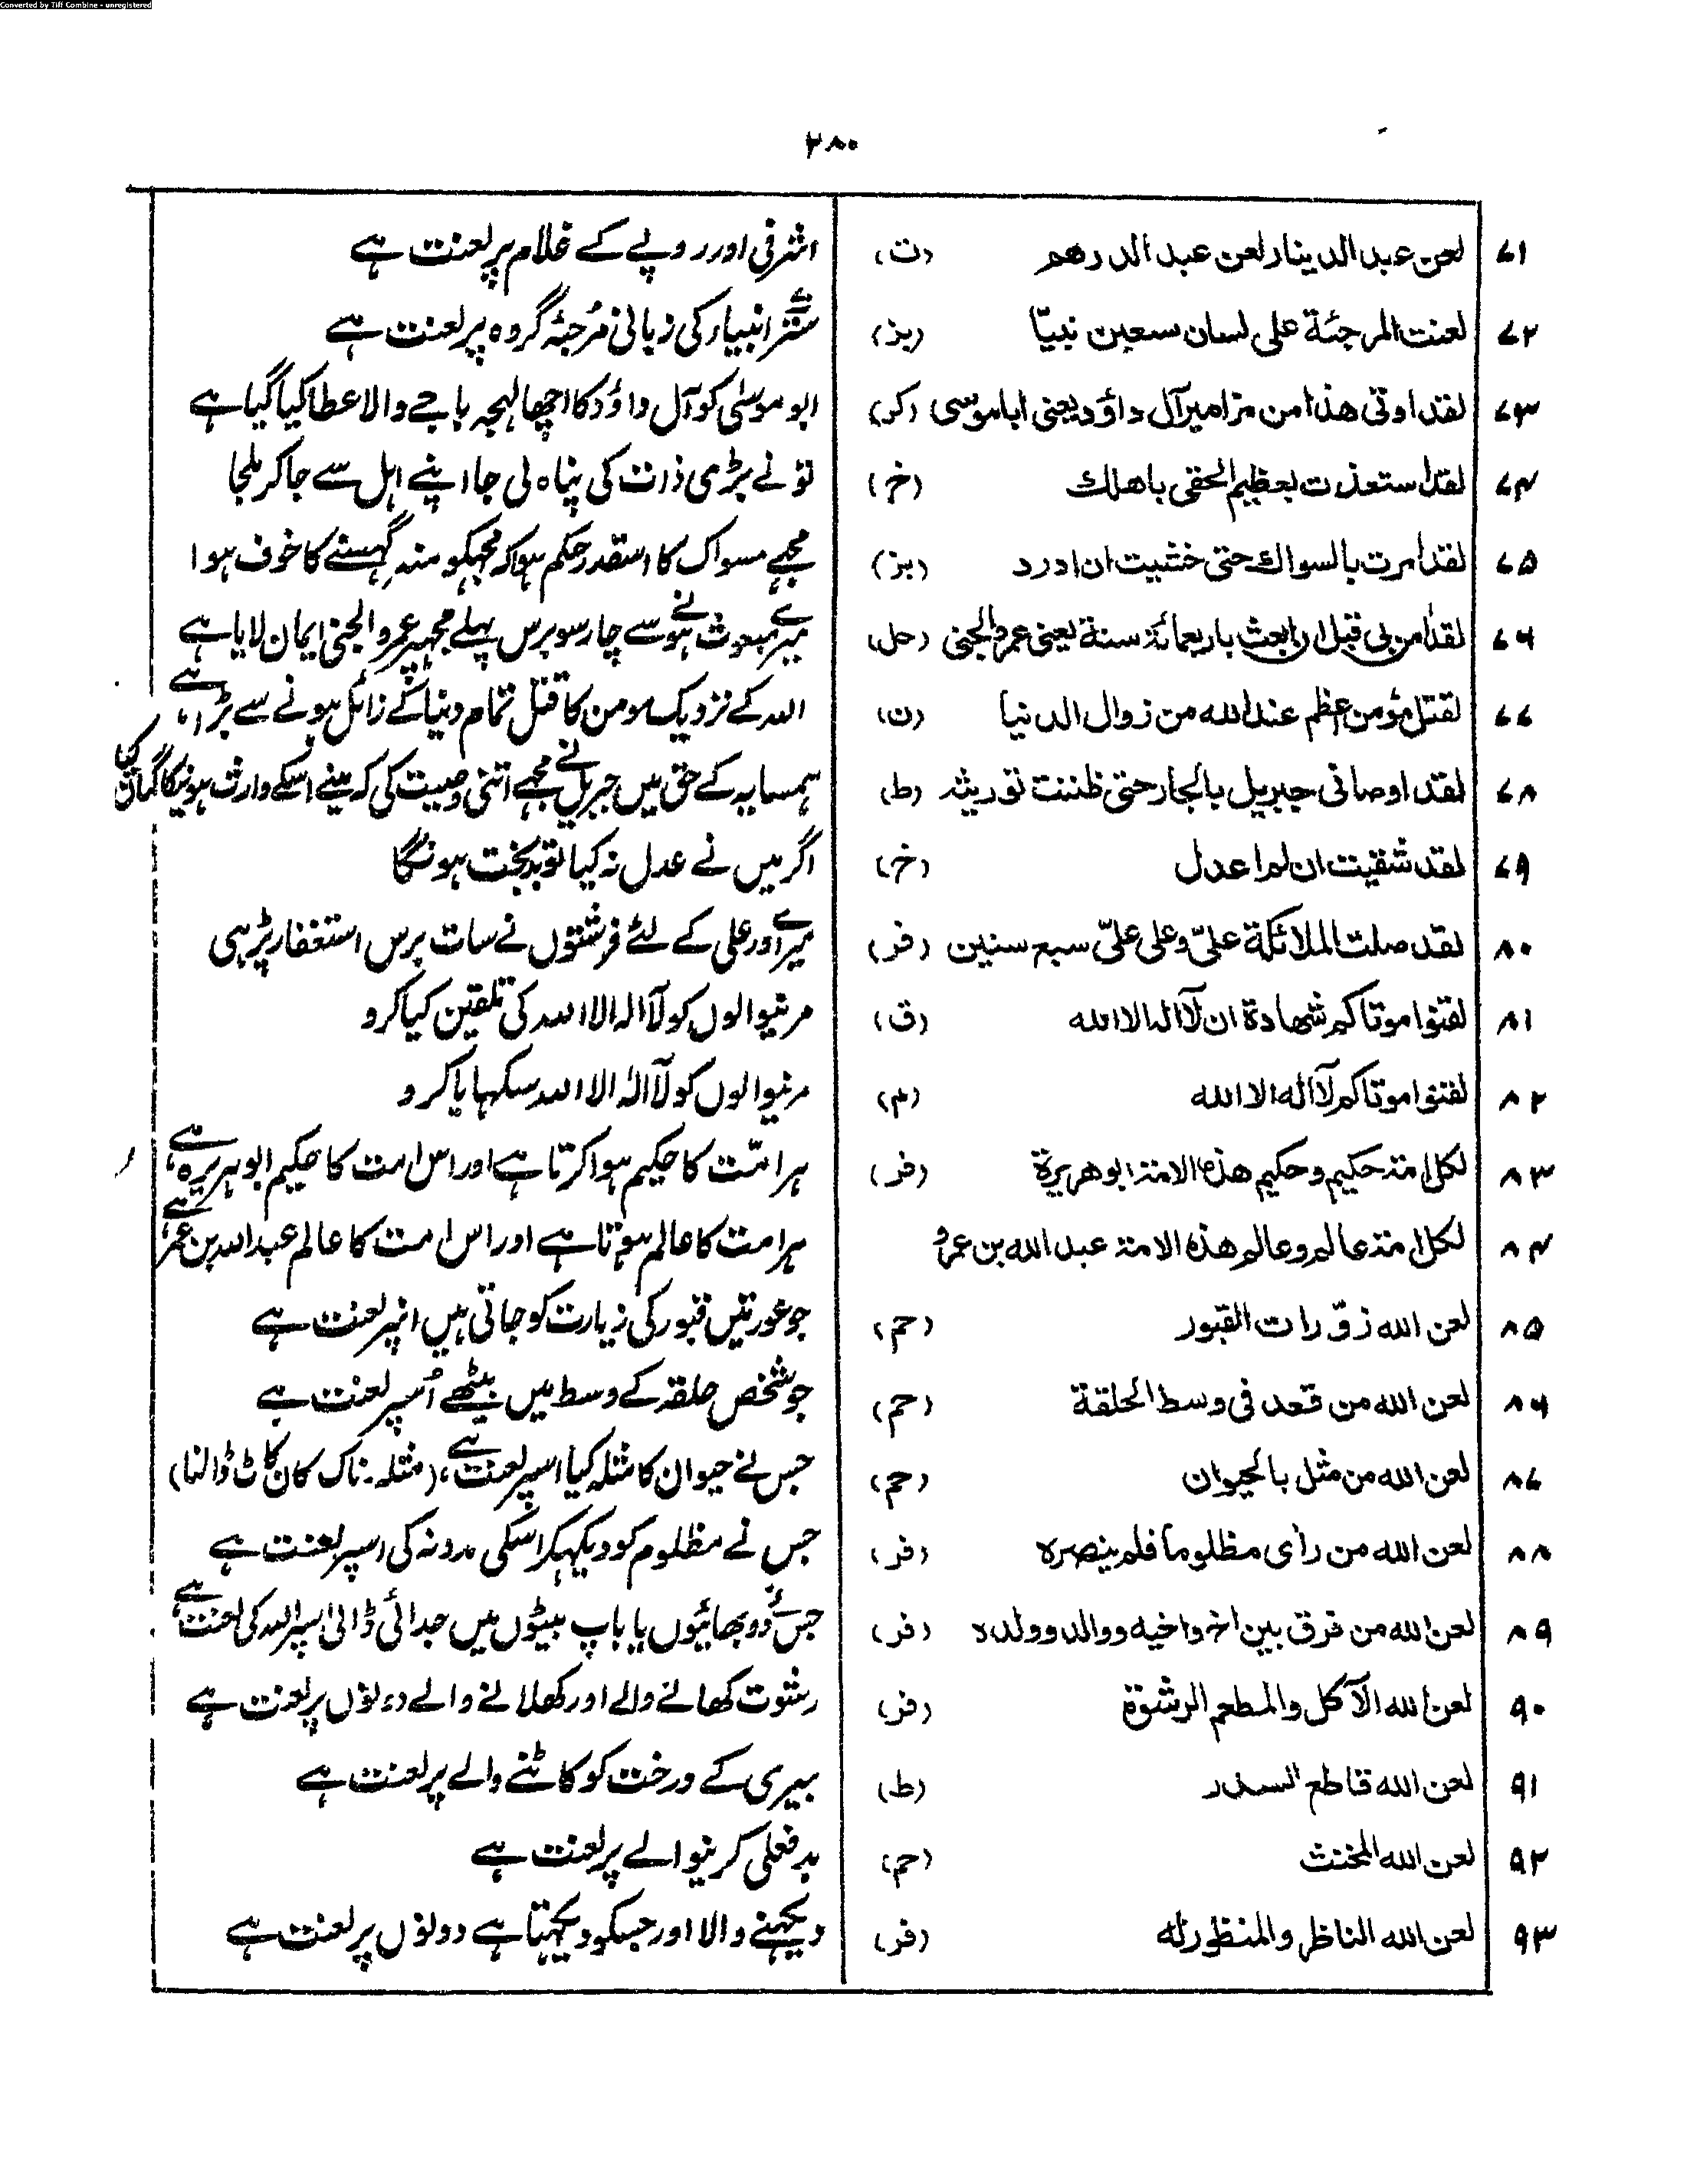 Converted by Tiff Combine - unregistered
۲۸۰
۷۱ لعن عبد الدینار لعن عبد الدرھم (ت) اشرفی اور روپے کے غلام پر لعنت ہے
۷۲ لعنت المرجئة علی لسان سبعین نبیّا (بز) ستّر انبیاء کی زبانی مُرجئہ گروہ پر لعنت ہے
۷۳ لقد اوتی ھذا من مزامیر آل داؤد یعنی ابا موسی (کر) ابو موسٰی کو آل داؤد کا اچھا لہجہ باجے والا عطا کیا گیا ہے
۷۴ لقد استعذت بعظیم الحقی باھلك (خ) تو نے بڑی ذات کی پناہ لی جا اپنے اہل سے جا کر ملجا
۷۵ لقد امرت بالسواك حتی خشیت ان ادرد (بز) مجھے مسواک کا اسقدر حکم ہوا کہ مجہکو منہ گہسنے کا خوف ہوا
۷۶ لقد اٰمن بی قبل ان ابعث باربعمائة سنة یعنی عمرو الجنی (حل) میرے مبعوث ہونے سے چار سو برس پہلے مجہپر عمرو الجنی ایمان لایا ہے
۷۷ لقتل مؤمن اعظم عند الله من زوال الدنیا (ن) اللہ کے نزدیک مومن کا قتل تمام دنیا کے زائل ہونے سے بڑا ہے
۷۸ لقد اوصانی جبریل بالجار حتی ظننت توریثہ (ط) ہمسایہ کے حق میں جبریل نے مجہے اتنی وصیت کی کہ مینے اسکے وارث ہونیکا گمان کیا
۷۹ لقد شقیت ان لم اعدل (خ) اگر میں نے عدل نہ کیا تو بدبخت ہونگا
۸۰ لقد صلت الملائکة علیّ وعلی علیّ سبع سنین (فر) میرے اور علی کے لئے فرشتوں نے سات برس استغفار پڑہی
۸۱ لقنوا موتاکم شھادة ان لآ الہ الا الله (ق) مرنیوالوں کو لآ الہ الا اللہ کی تلقین کیا کرو
۸۲ لقنوا موتاکم لآ الہ الا الله (م) مرنیوالوں کو لآ الہ الا اللہ سکہایا کرو
۸۳ لکل امة حکیم وحکیم ھذہ الامة ابو ھریرة (فر) ہر امّت کا حکیم ہوا کرتا ہے اور اس امت کا حکیم ابو ہریرہ ہے
۸۴ لکل امة عالم وعالم ھذہ الامة عبد الله بن عمرو ہر امت کا عالم ہوتا ہے اور اس امت کا عالم عبد اللہ بن عمر ہے
۸۵ لعن الله زوّرات القبور (حم) جو عورتیں قبور کی زیارت کو جاتی ہیں انپر لعنت ہے
۸۶ لعن الله من قعد فی وسط الحلقة (حم) جو شخص حلقہ کے وسط میں بیٹھے اُسپر لعنت ہے
۸۷ لعن الله من مثل بالحیوان (حم) جس نے حیوان کا مثلہ کیا اسپر لعنت ہے، (مثلہ۔ ناک کان کاٹ ڈالنا)
۸۸ لعن الله من رأی مظلوما فلم ینصرہ (فر) جس نے مظلوم کو دیکہکر اسکی مدد نہ کی اسپر لعنت ہے
۸۹ لعن الله من فرق بین اخ واخیہ ووالد وولدہ (فر) جس نے دو بھائیوں یا باپ بیٹوں میں جدائی ڈالی اسپر اللہ کی لعنت ہے
۹۰ لعن الله الآکل والمطعم الرشوة (فر) رشوت کھانے والے اور کھلانے والے دونوں پر لعنت ہے
۹۱ لعن الله قاطع السدر (ط) بیری کے درخت کو کاٹنے والے پر لعنت ہے
۹۲ لعن الله المخنث (حم) بدفعلی کرنیوالے پر لعنت ہے
۹۳ لعن الله الناظر والمنظور الہ (فر) دیکہنے والا اور جسکو دیکہتا ہے دونوں پر لعنت ہے